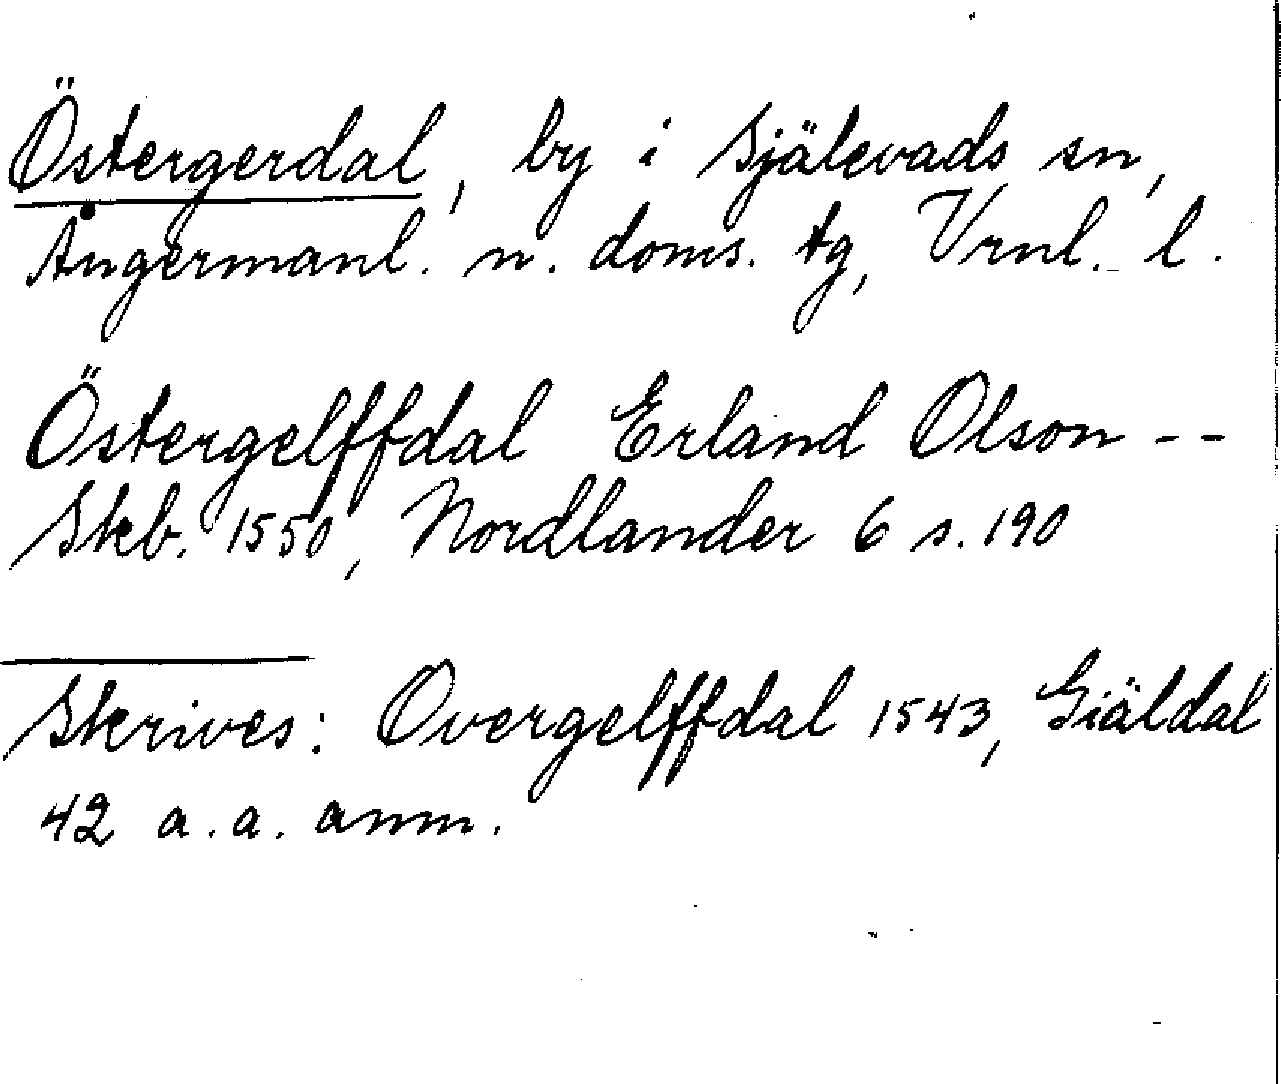 Östergerdal, by i Själevads sn,
Ångermanl. n. doms. tg, Vrnl. l.
Östergelffdal Erland Olson --
Skb. 1550, Nordlander 6 s. 190
Skrives: Overgelffdal 1543, Giäldal
42 a. a. anm.